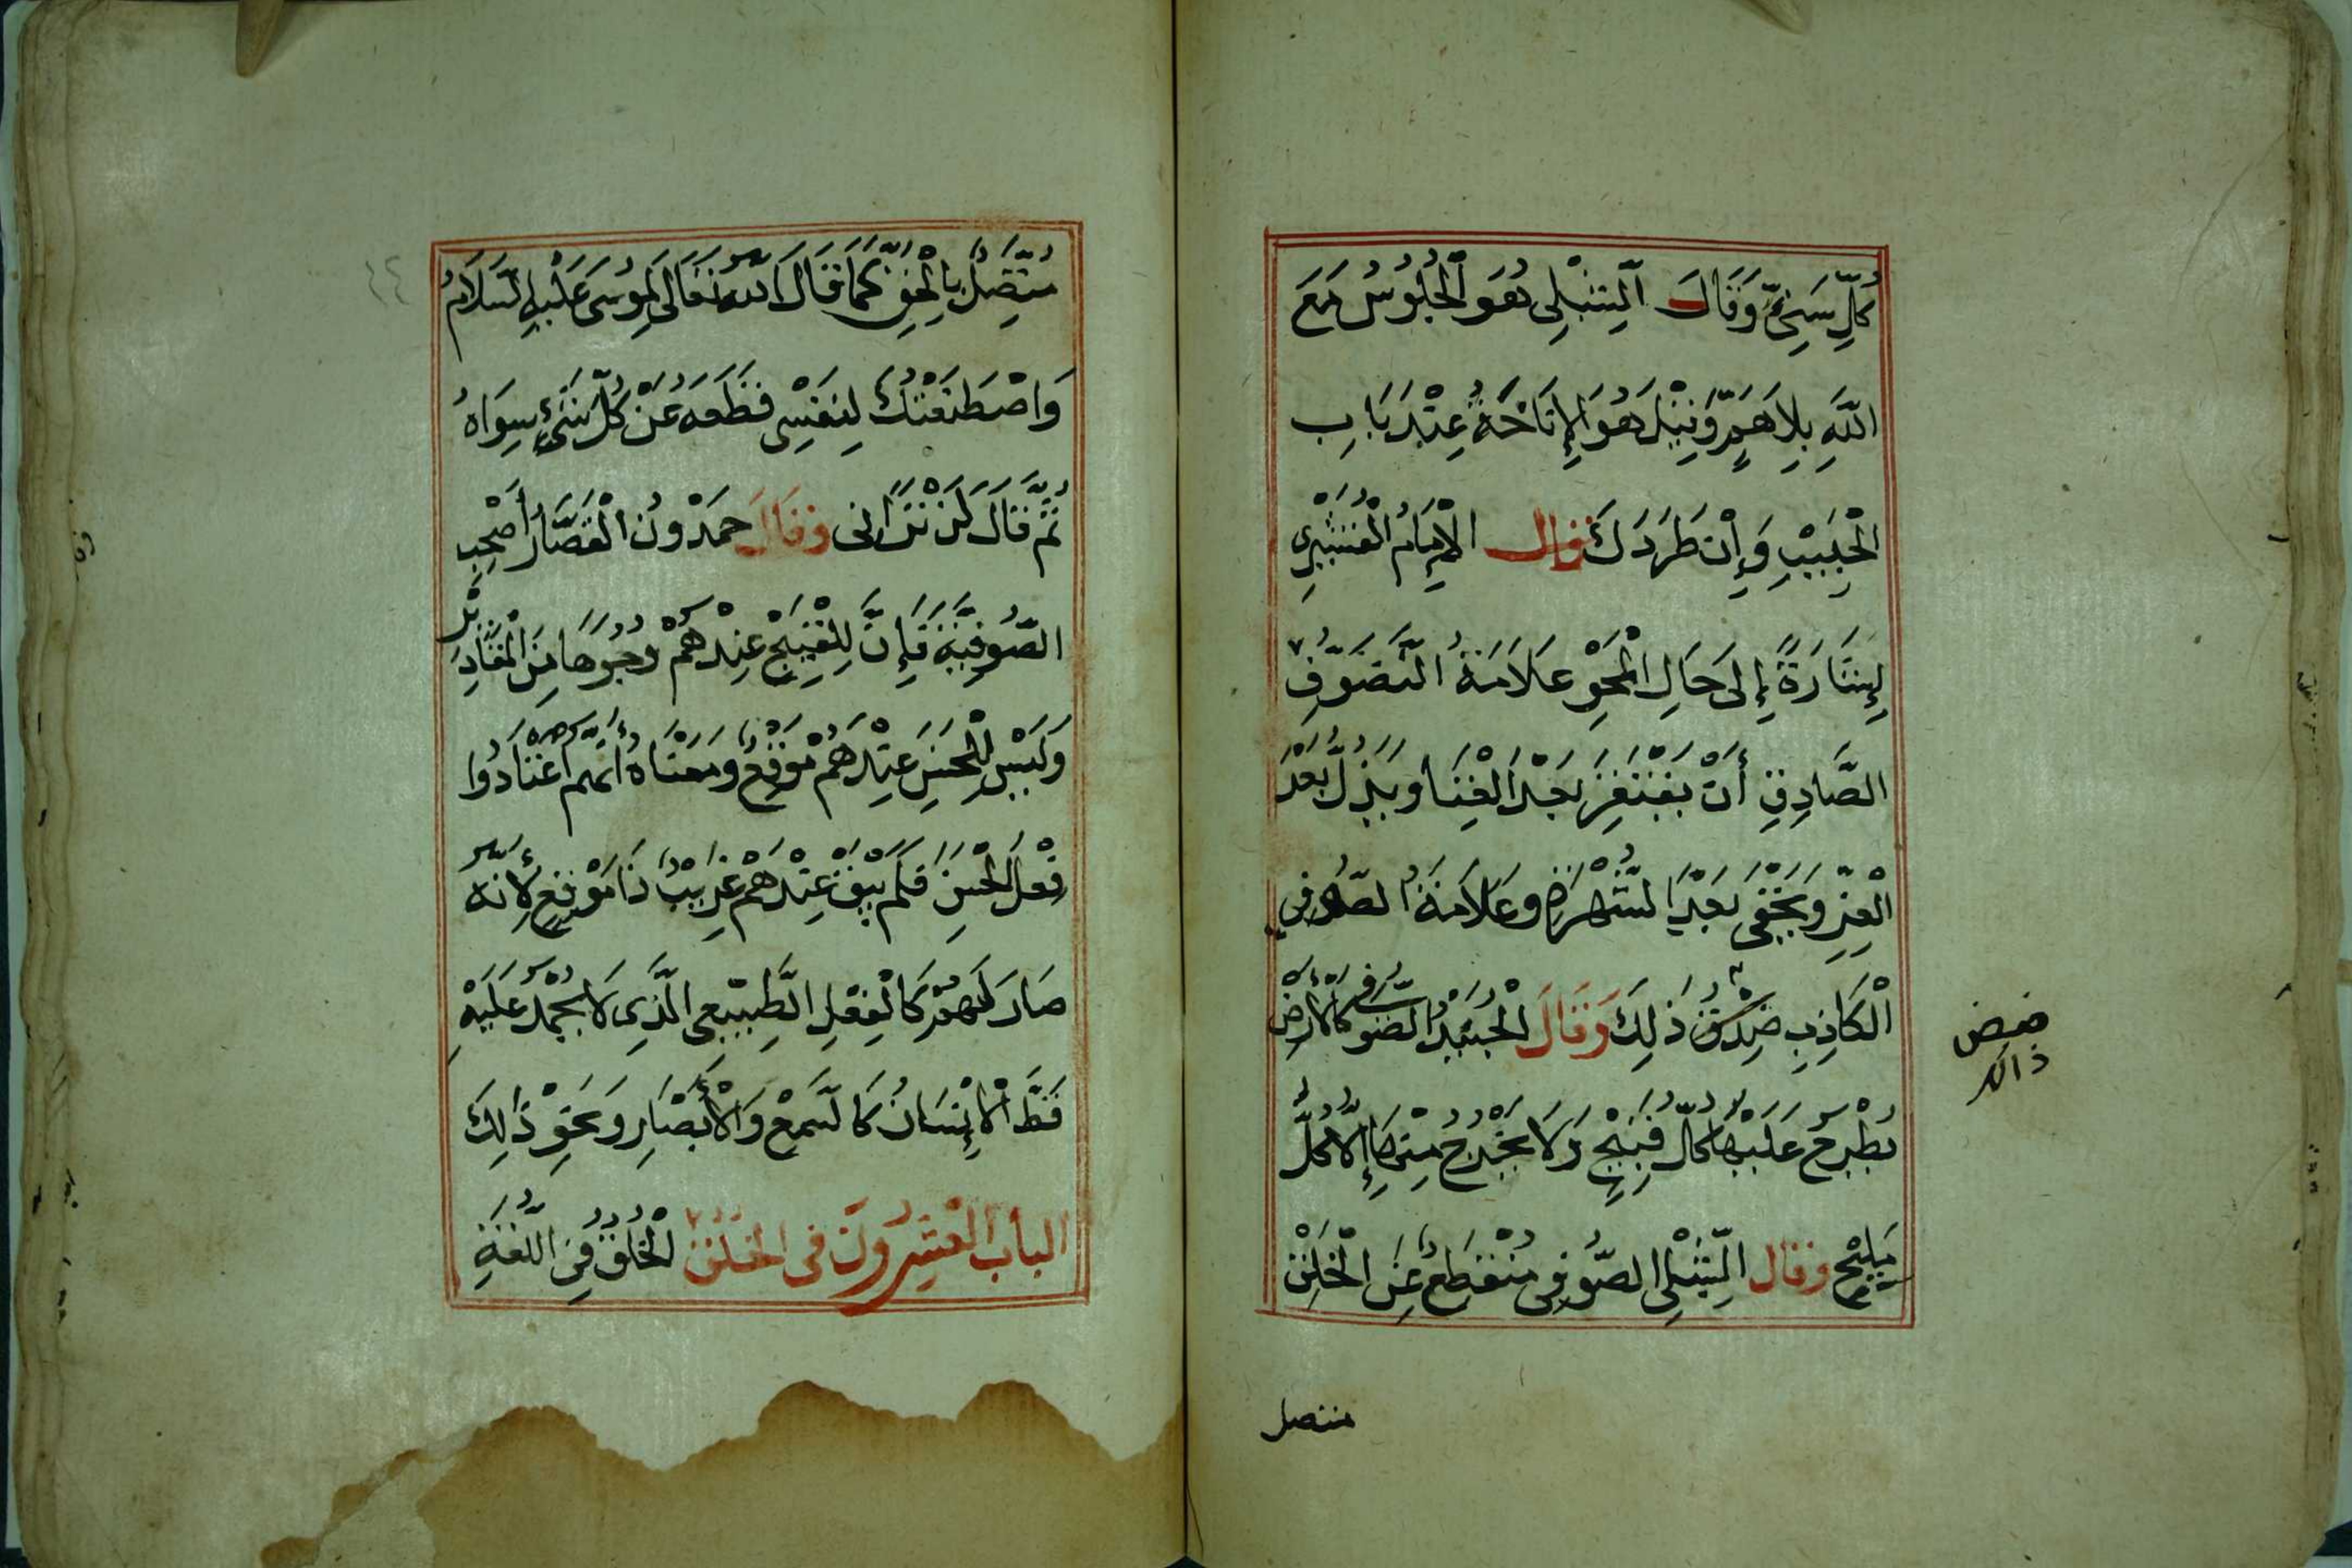 كُلِّ سَنِيٍّ وَقَالَ الشِّبْلِي هُوَ الْجُلُوسُ مَعَ
اللَّهِ بِلَا هَمٍّ وَقِيْلَ هُوَ الْإِنَاخَةُ عِنْدَ بَابِ
الْحَبِيْبِ وَإِنْ طَرَدَكَ وقال الْإِمَامُ الْقُشَيْرِي
إِشَارَةً إِلَى حَالِ الْمَحْوِ عَلَامَةُ التَّصَوُّفِ
الصَّادِقِ أَنْ يَفْتَقِرَ بَعْدَ الْغِنَا وَيَذِلَّ بَعْدَ
الْعِزِّ وَيَخْفَى بَعْدَ الشُّهْرَةِ وَعَلَامَةُ الصُّوفِي
الْكَاذِبِ ضِدُّ ذَلِكَ وَقَالَ الْجُنَيْدُ الصُّوفِي كَالْأَرْضِ
يُطْرَحُ عَلَيْهَا كُلُّ قَبِيْحٍ وَلَا يَخْرُجُ مِنْهَا إِلَّا كُلُّ
مَلِيْحٍ وقال الشِّبْلِي الصُّوفِي مُنْقَطِعٌ عَنِ الْخَلْقِ
ذالك
متصل
مُتَّصِلٌ بِالْحَقِّ كَمَا قَالَ اللَّهُ تَعَالَى لِمُوسَى عَلَيْهِ السَّلَامُ
وَاصْطَنَعْتُكَ لِنَفْسِي فقَطَعَهُ عَنْ كُلِّ شَيْءٍ سِوَاهُ
ثُمَّ قَالَ لَنْ تَرَانِي وَقَالَ حَمْدُونُ الْقَصَّارُ أَصْحِبِ
الصُّوفِيَّةَ فَإِنَّ لِلْقَبِيْحِ عِنْدَهُمْ وُجُوهًا مِنَ الْمَعَاذِيْرِ
وَلَيْسَ لِلْحَسَنِ عِنْدَهُمْ مَوْقِعٌ وَمَعْنَاهُ أَنَّهُمْ اعْتَادُوا
فِعْلَ الْحَسَنِ فَلَمْ يَبْقَ عِنْدَهُمْ غَرِيْبٌ ذَا مَوْقِعٍ لِأَنَّهُ
صَارَ لَهُمْ كَالْفِعْلِ الطَّبِيْعِي الَّذِي لَا يُحْمَدُ عَلَيْهِ
قَطُّ الْإِنْسَانُ كَالسَّمْعِ وَالْأَبْصَارِ وَنَحْوِ ذَلِكَ
الباب الْعِشْرُونَ في الخلق الْخُلُقُ فِي اللُّغَةِ